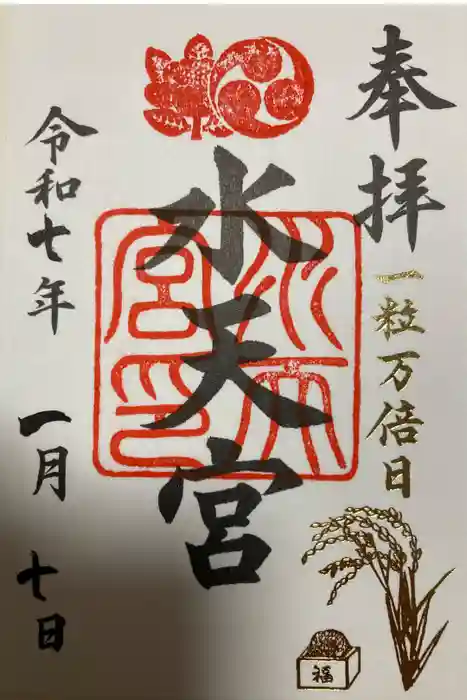 奉拝
一粒万倍日
水天宮
令和七年
一月
七日
福